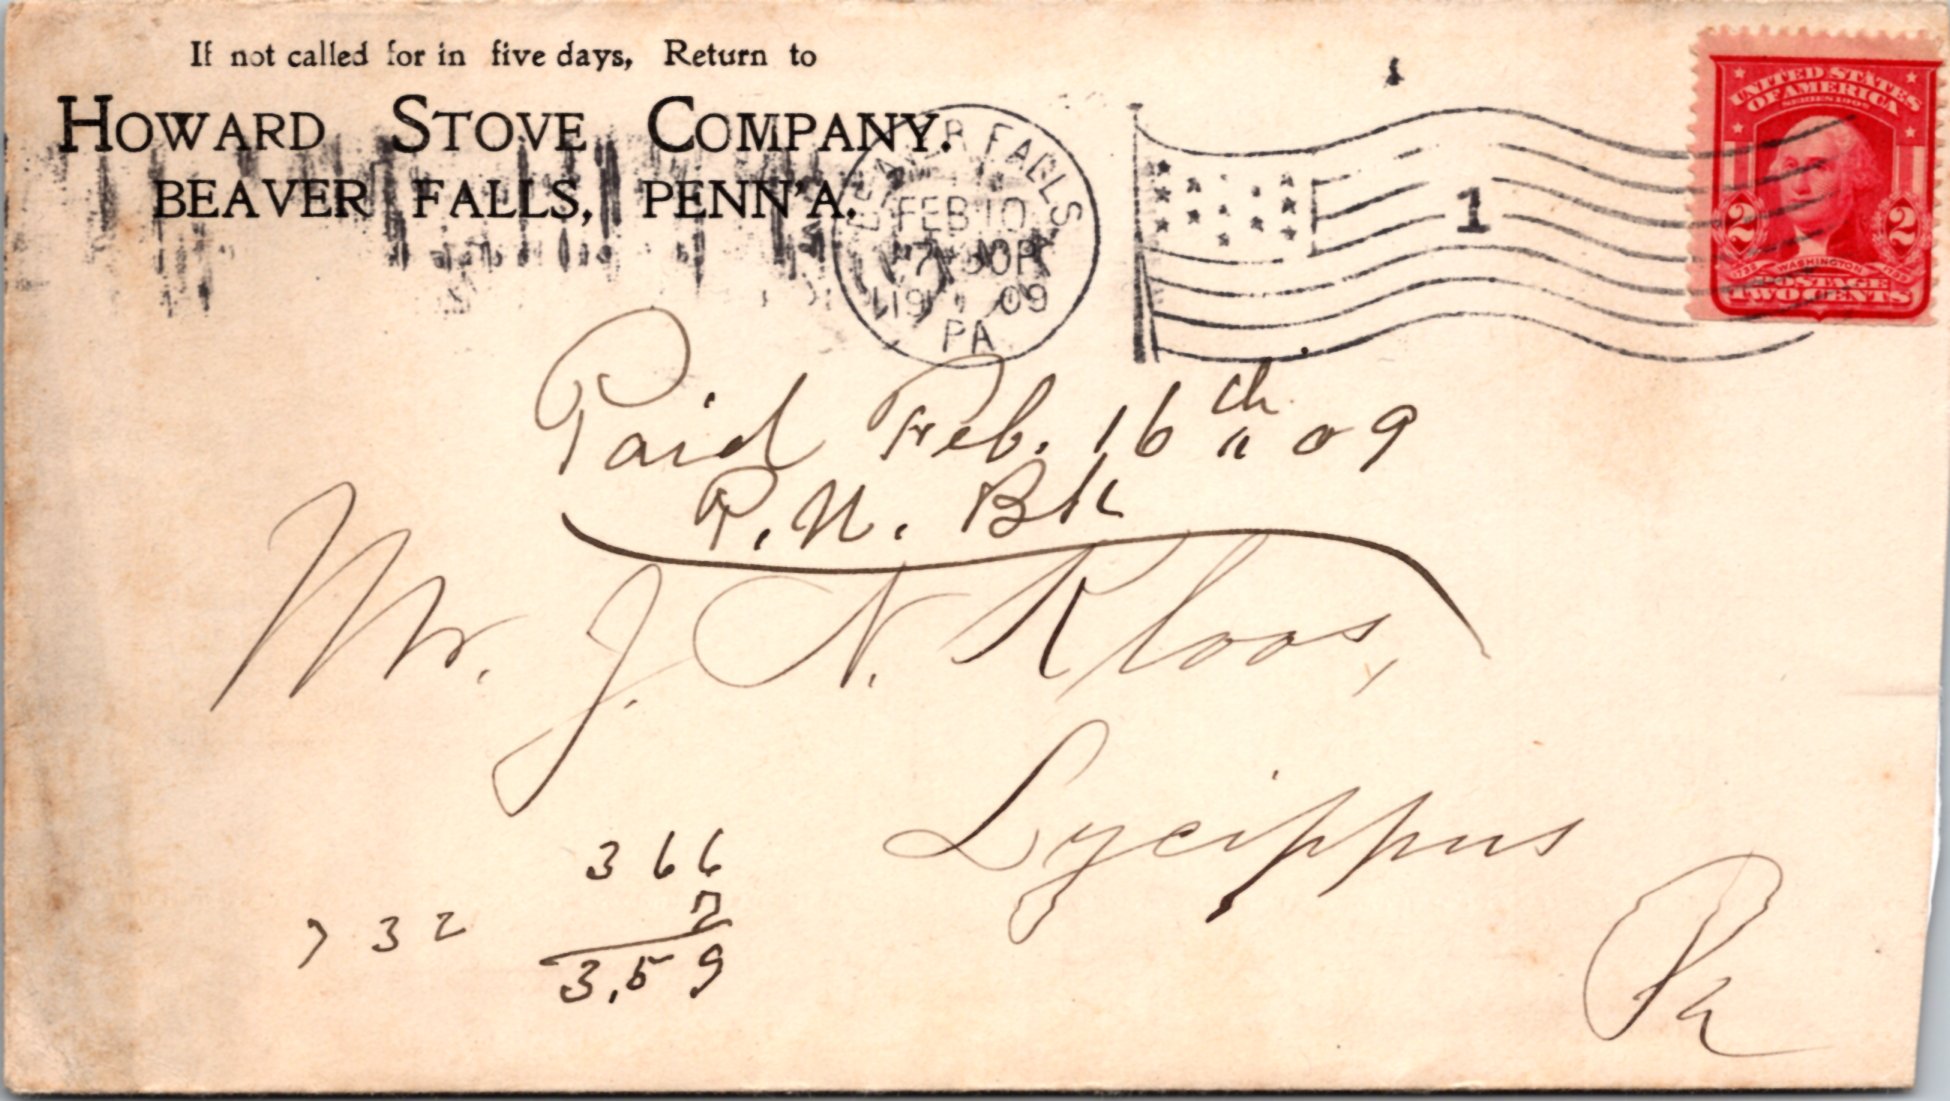 If not called for in five days, Return to
HOWARD STOVE COMPANY.
BEAVER FALLS, PENN'A.
BEAVER FALLS
FEB 10
7 30P
1909
PA
1
UNITED STATES
OF AMERICA
SERIES 1902
2 2
1732 WASHINGTON 1799
POSTAGE
TWO CENTS
Paid Feb. 16th " 09
P. N. Bk
Mr. J. N. Kloos,
Lycippus
Pa
366
7
3,59
732